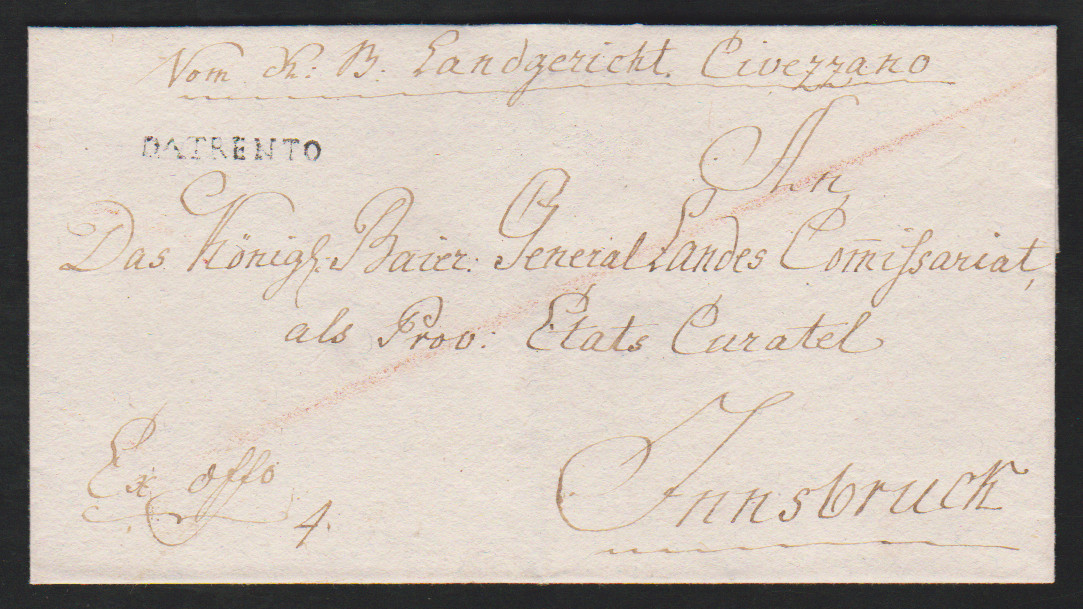 Vom K: B. Landgericht Civezzano
DATRENTO
An
Das Königl. Baier: General Landes Com̄issariat,
als Prov: Etats Curatel
Ex offo
4.
Innsbruck